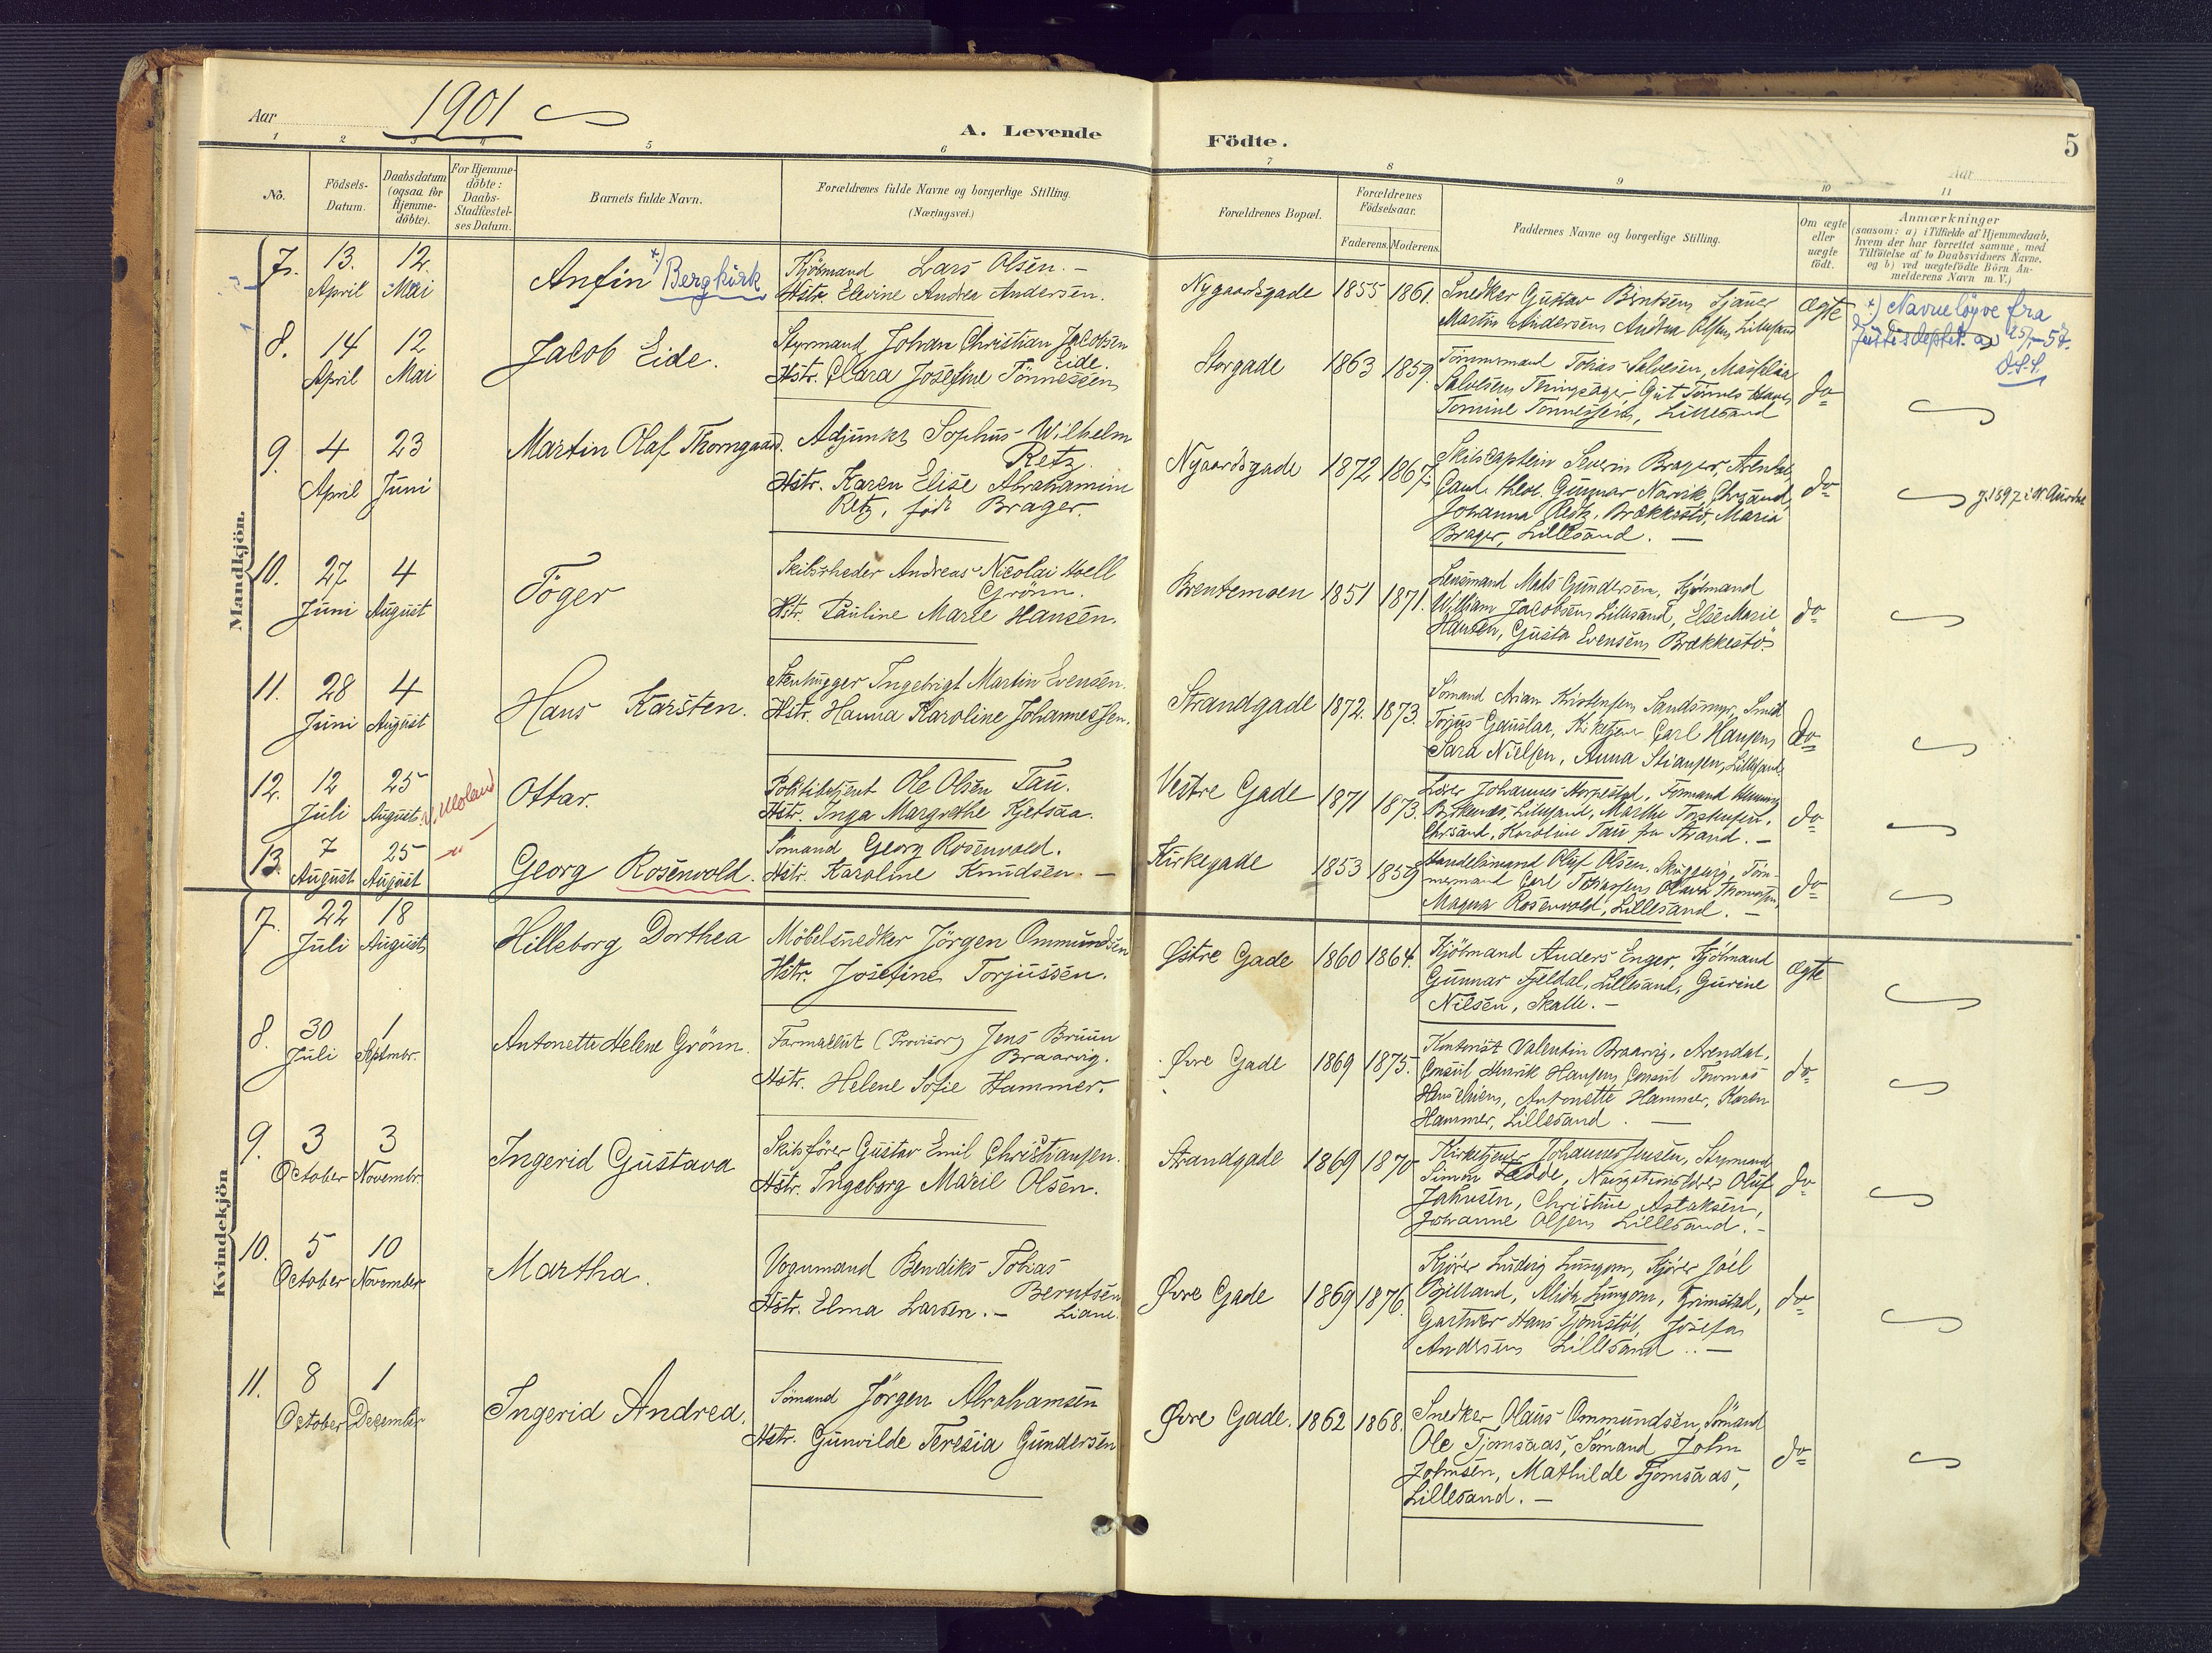 Aar 1901
A. Levende
Födte.
5
Aar
1 2 3 4 5 6 7 8 9 10 11
No.
Födsels-
Datum.
Daabsdatum
(ogsaa for
Hjemme-
döbte).
For Hjemme-
döbte:
Daabs-
Stadfæstel-
ses Datum.
Barnets fulde Navn.
Forældrenes fulde Navne og borgerlige Stilling.
(Næringsvei.)
Forældrenes Bopæl.
Forældrenes
Födselsaar.
Faderens. Moderens.
Faddernes Navne og borgerlige Stilling.
Om ægte
eller
uægte
födt.
Anmærkninger
(saasom: a) i Tilfælde af Hjemmedaab,
hvem der har forrettet samme, med
Tilföielse af to Daabsvidners Navne,
og b) ved uægtefödte Börn An-
melderens Navn m. V.)
Mandkjön.
7. 13. April 12. Mai
Anfin x) Bergkirk
Kjöbmand Lars Olsen. -
Hstr. Elevine Andrea Andersen.
Nygaardsgade 1855 1861.
Snedker Gustav Berntsen,
Martin Andersen, Andrea Olsen, Lillesand
Ægte
x) Navneløyve frå
Justisdeptet. av 25/ -57.
8. 14 April 12 Mai
Jacob Eide.
Styrmand Johan Christian Jacobsen
Eide.
Hstr. Clara Josefine Tönnessen
Storgade 1863 1859.
Tömmermand Tobias Salvesen,
Salvesen,
Tomine Tönnessen, Lillesand
do
9. 4 April 23 Juni
Martin Olaf Thorngaard.
Adjunkt Sophus Wilhelm
Retz.
Hstr. Karen Elise Abrahamine
Retz, föd Brager.
Nygaardsgade 1872 1867.
Skibscaptein Severin Brager, Arendal,
Cand. theol. Gunnar Narvik, Chrsand,
Johanna Retz, Brækkestö, Maria
Brager, Lillesand. -
do
10. 27 Juni 4 August
Töger
Skibsrheder Andreas Nicolai Hoell
Grönn.
Hstr. Pauline Marie Hansen.
Brentemoen 1851 1871.
Lensmand Mads Gundersen, Kjöbmand
William Jacobsen, Lillesand, Else Marie
Hansen, Gusta Evensen, Brækkestö.
do
11. 28 Juni 4 August
Hans Karsten.
Stenhugger Ingebrigt Martin Evensen.
Hstr. Hanna Karoline Johannessen.
Strandgade 1872. 1873.
Sömand Kristensen, Sandsmyr, Smed
Torjus Gauslaa, Kirketjener Carl Hansen,
Sara Nielsen, Anna Stiansen, Lillesand.
do
12. 12 Juli 25 August
V. Moland
Ottar.
Politibetjent Ole Olsen Tau.
Hstr. Inga Margrethe Kjetsaa.
Vestre Gade 1871 1873.
Lærer Johannes
Birkenes, Lillesand, Marthe Torstensen,
Chrsand, Karoline Tau fra Strand. -
do
13. 7 August 25 August
Georg Rosenvold.
Sömand Georg Rosenvold.
Hstr. Karoline Knudsen. -
Kirkegade 1853 1859
Handelsmand Oluf Olsen, Töm-
mermand Carl Tobiassen, Olava Thomassen,
Magna Rosenvold, Lillesand. -
do
Kvindekjön
7. 22 Juli 18 August
Hilleborg Dorthea
Möbelsnedker Jörgen Ommundsen
Hstr. Josefine Torjussen.
Østre Gade 1860 1864.
Kjöbmand Anders Enger, Kjöbmand
Gunnar Fjeldal, Lillesand, Gurine
Nilsen, Skalle. -
Ægte
8. 30 Juli 1 Septmbr.
Antonette Helene Grönn.
Farmaceut (Provisor) Jens Bruun
Braarvig.
Hstr. Helene Sofie Hammer.
Øvre Gade 1869 1875.
Kontorist Valentin Braarvig, Arendal,
Consul Henrik Hansen, Consul Thomas
Antonette Hammer, Karen
Hammer, Lillesand. -
do
9. 3 October 3 Novembr.
Ingerid Gustava
Skibsförer Gustav Emil Christiansen.
Hstr. Ingeborg Marie Olsen.
Strandgade 1869 1870
Kirketjener Johannes Jensen, Styrmand
Simon Fedde, Navigationslærer Oluf
Johnsen, Christine Aslaksen,
Johanne Olsen, Lillesand. -
do
10. 5 October 10 November
Martha.
Vognmand Bendiks Tobias
Berntsen
Hstr. Elma Larsen. - Liane.
Øvre Gade 1869 1876.
Kjörer Ludvig Kjörer Joel
Grimstad,
Gartner Hans Josefa
Andersen Lillesand. -
do
11. 8 October 1 December
Ingerid Andrea.
Sömand Jörgen Abrahamsen
Hstr. Gunvilde Teresia Gundersen
Øvre Gade. 1862 1868.
Snedker Olaus Ommundsen, Sömand
Ole Tjomsaas, Sömand John
Johnsen, Mathilde Tjomsaas,
Lillesand. -
do